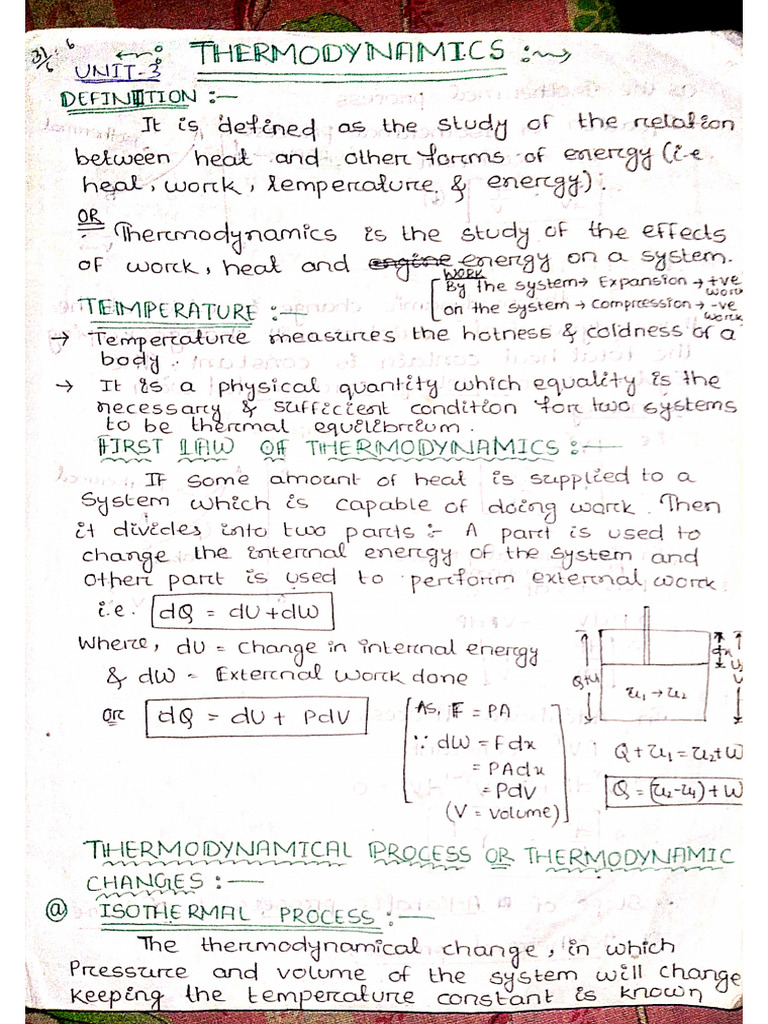 31/6 6
THERMODYNAMICS :
UNIT-3
DEFINITION :-
It is defined as the study of the relation
between heat and other forms of energy (i.e
heat, work, temperature & energy).
OR
Thermodynamics is the study of the effects
of work, heat and engine energy on a system.
WORK
By the system → Expansion → +ve work
on the system → compression → -ve work
TEMPERATURE :-
→ Temperature measures the hotness & coldness of a
body.
→ It is a physical quantity which equality is the
necessary & sufficient condition for two systems
to be thermal equilibrium.
FIRST LAW OF THERMODYNAMICS :-
If some amount of heat is supplied to a
system which is capable of doing work. Then
it divides into two parts :- A part is used to
change the internal energy of the system and
other part is used to perform external work
i.e. dQ = dU+dW
Where, dU = change in internal energy
& dW = External work done
or dQ = dU + PdV
As, F = PA
∵ dW = Fdx
= PAdx
= PdV
(V = volume)
Q+U₁
u₁ → u₂
dx
U₂
V
Q + u₁ = u₂+W
Q = (u₂-u₁) + W
THERMODYNAMICAL PROCESS OR THERMODYNAMIC
CHANGES :-
@ ISOTHERMAL PROCESS :-
The thermodynamical change, in which
Pressure and volume of the system will change
keeping the temperature constant is known